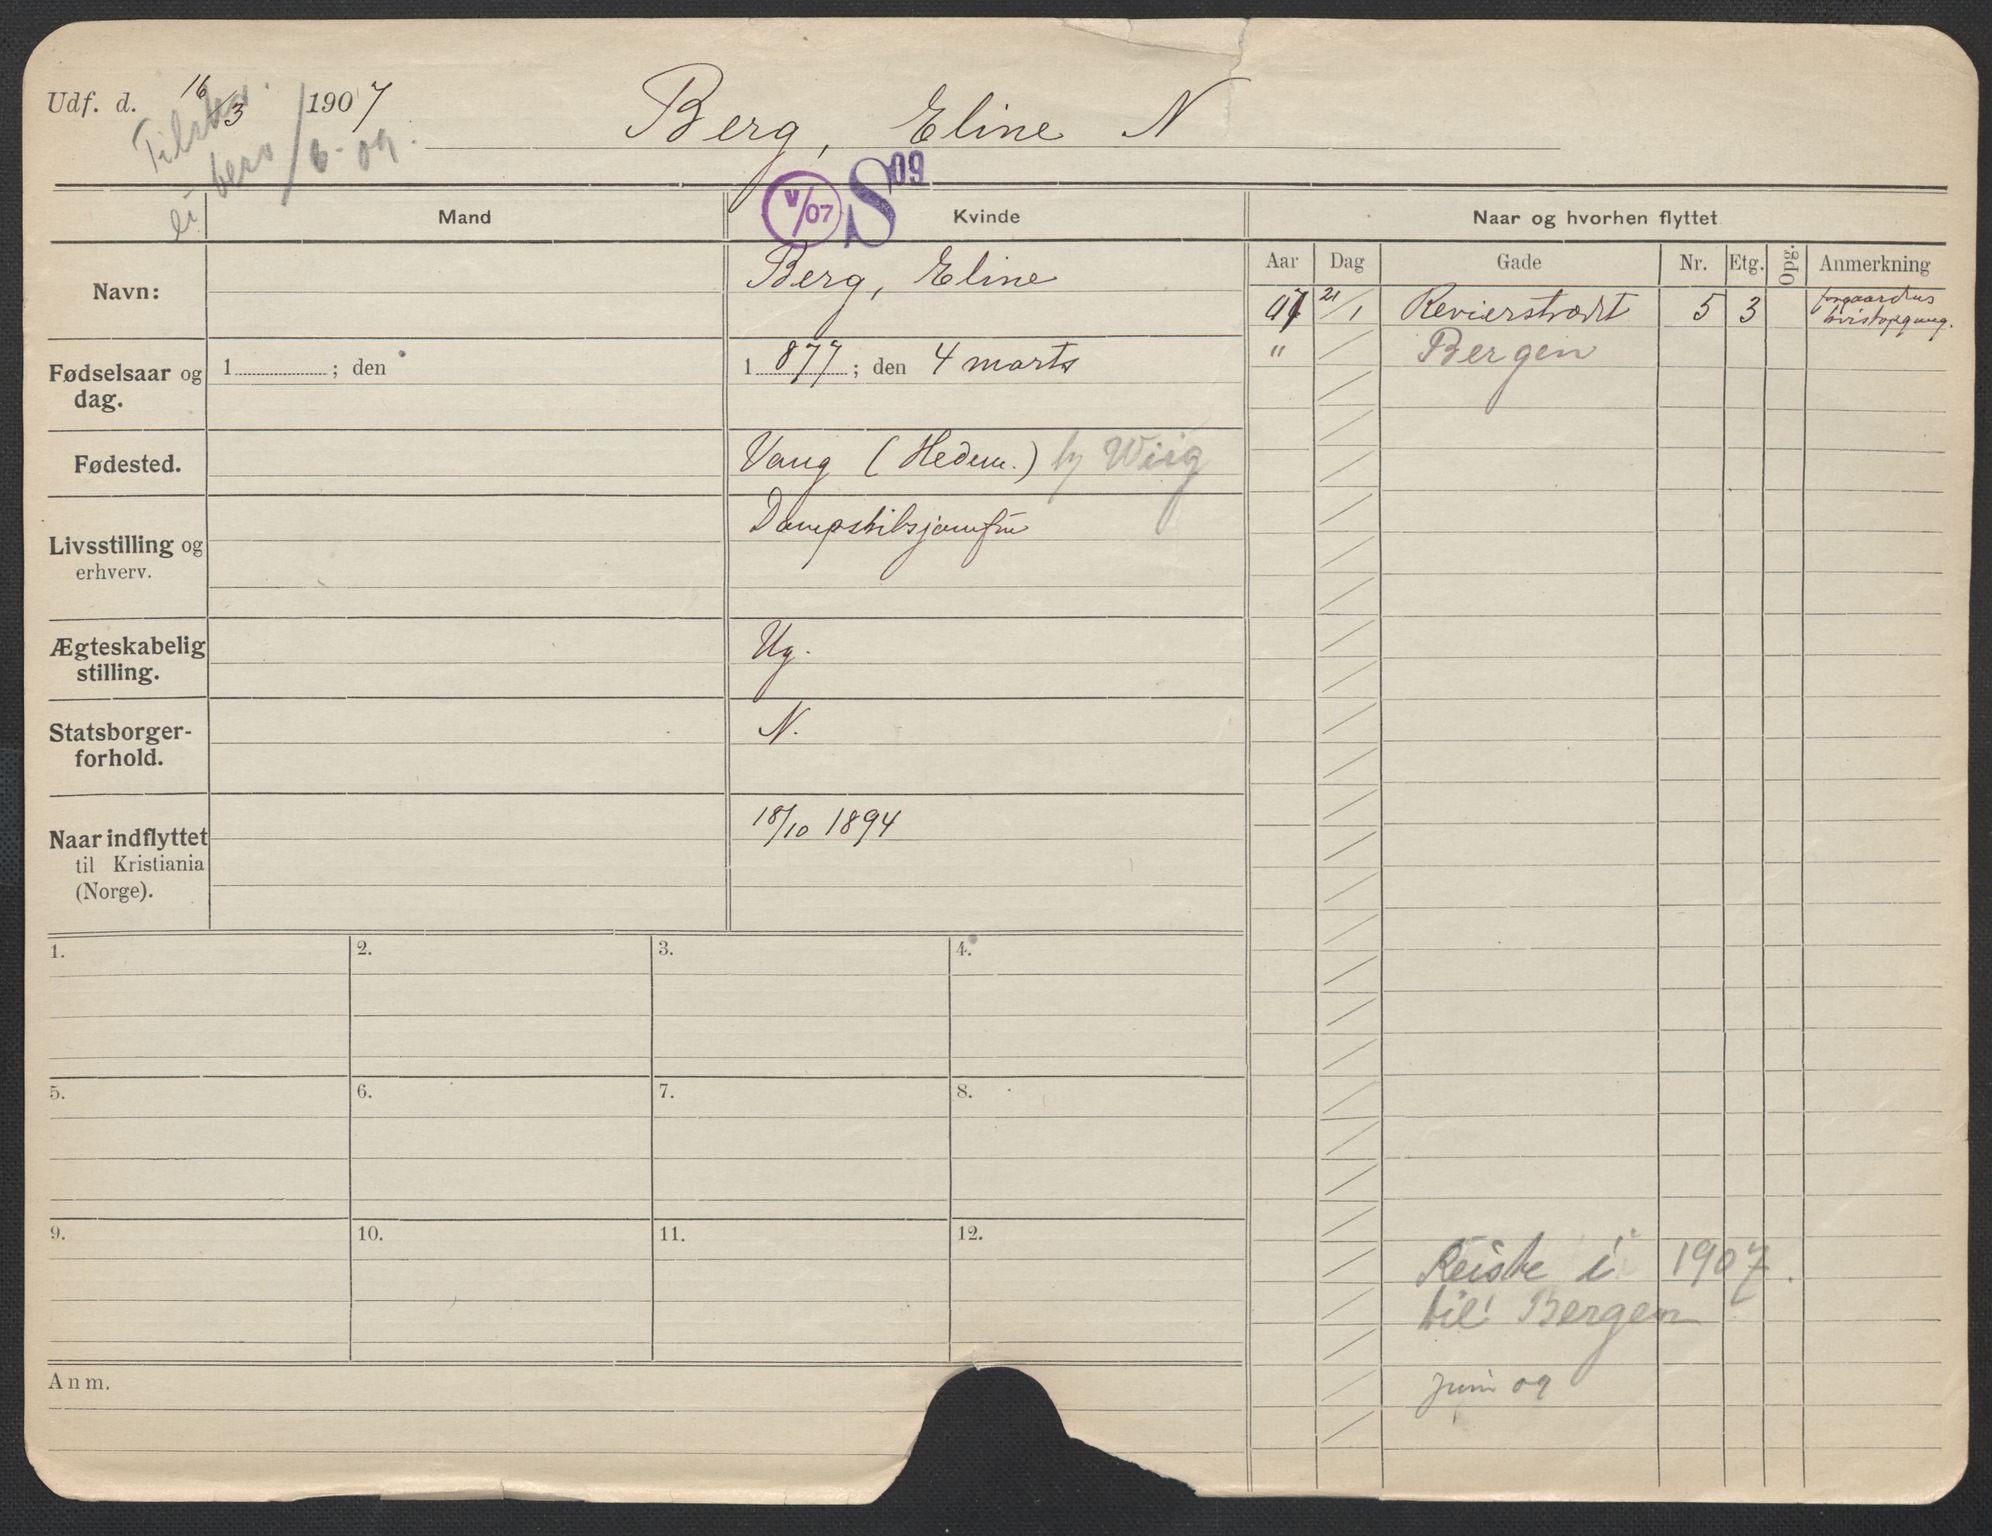 Udf. d. 16/3 1907
Berg, Eline N
6-09.
V/07 S 09
Mand
Kvinde
Naar og hvorhen flyttet
Navn:
Berg, Eline
Aar Dag Gade Nr. Etg. Opg. Anmerkning
07 21/1 Revierstrædet 5 3 forgaardens kvistopgang.
" Bergen
Fødselsaar og
dag.
1 ; den
1 877 ; den 4 marts
Fødested.
Vang (Hedem.) Wiig
Livsstilling og
erhverv.
Dampskibsjomfru
Ægteskabelig
stilling.
Ug.
Statsborger-
forhold.
N.
Naar indflyttet
til Kristiania
(Norge).
18/10 1894
1. 2. 3. 4.
5. 6. 7. 8.
9. 10. 11. 12.
Reiste i 1907.
til Bergen
Juni 09
Anm.